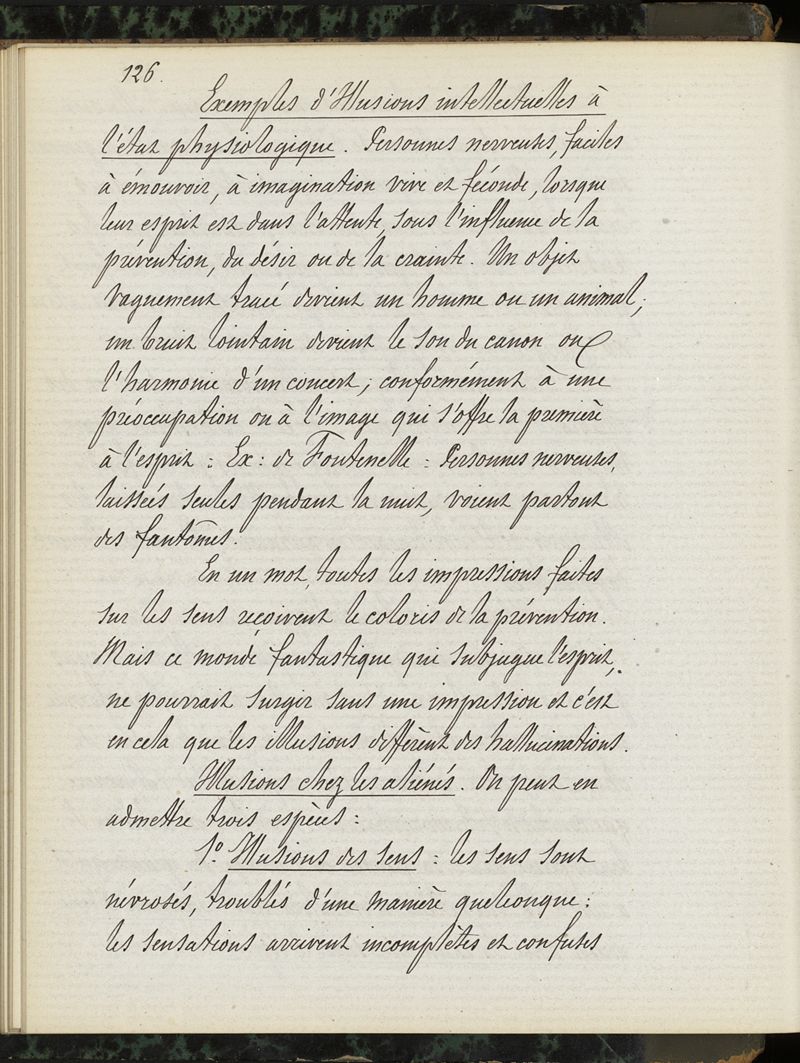 126.
Exemples d'Illusions intellectuelles à
l'état physiologique. Personnes nerveuses, faciles
à émouvoir, à imagination vive et féconde, lorsque
leur esprit est dans l'attente, sous l'influence de la
prévention, du désir ou de la crainte. Un objet
vaguement tracé devient un homme ou un animal;
un bruit lointain devient le son du canon ou
l'harmonie d'un concert; conformément à une
préoccupation ou à l'image qui s'offre la première
à l'esprit : Ex: de Fontenelle : Personnes nerveuses,
laissées seules pendant la nuit, voient partout
des fantômes.
En un mot, toutes les impressions faites
sur les sens reçoivent le coloris de la prévention.
Mais ce monde fantastique qui subjugue l'esprit,
ne pourrait surgir sans une impression et c'est
en cela que les illusions diffèrent des hallucinations.
Illusions chez les aliénés. On peut en
admettre trois espèces :
1.° Illusions des sens : les sens sont
névrosés, troublés d'une manière quelconque :
les sensations arrivent incomplètes et confuses